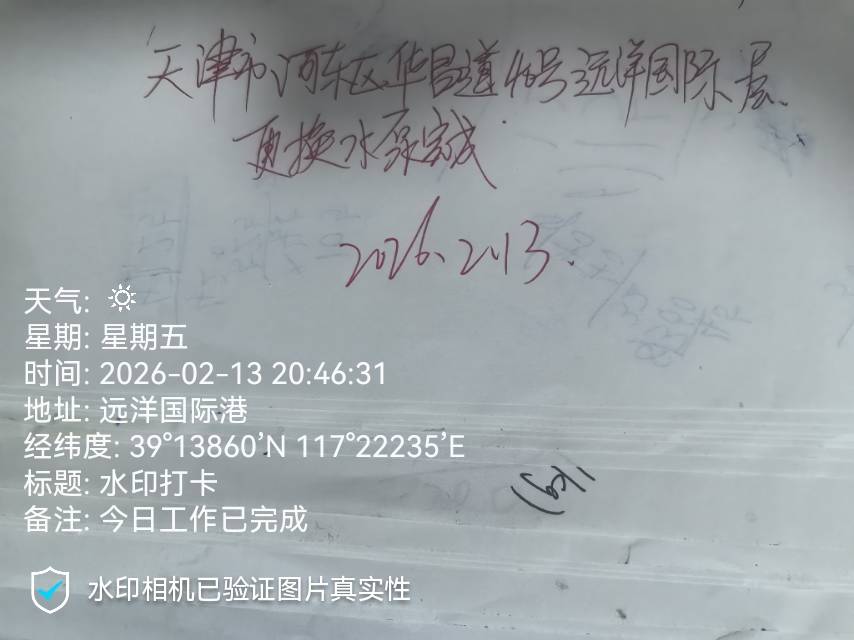 天津市河东区华昌道40号远洋国际 层
更换水泵完成
2026.2.13.
天气:
星期: 星期五
时间: 2026-02-13 20:46:31
地址: 远洋国际港
经纬度: 39°13860’N 117°22235’E
标题: 水印打卡
备注: 今日工作已完成
(1kg)
水印相机已验证图片真实性